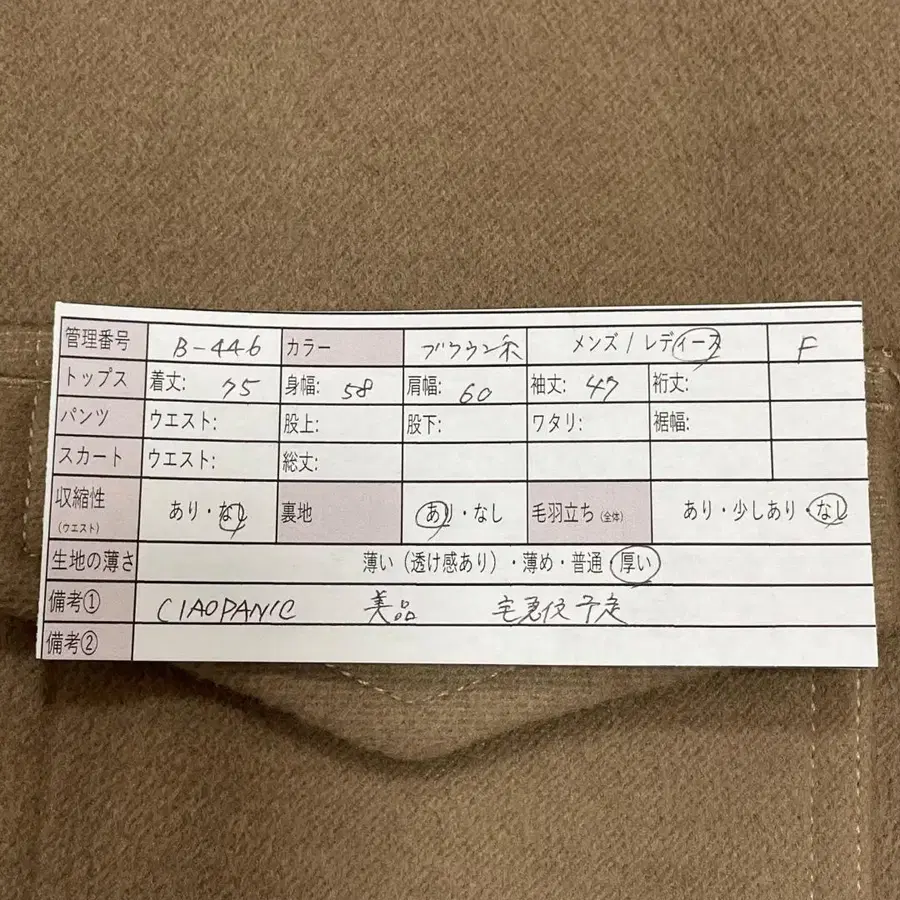 管理番号 B-446 カラー ブラウン系 メンズ / レディース F
トップス 着丈: 75 身幅: 58 肩幅: 60 袖丈: 47 裄丈:
パンツ ウエスト: 股上: 股下: ワタリ: 裾幅:
スカート ウエスト: 総丈:
収縮性 (ウエスト) あり・なし 裏地 あり・なし 毛羽立ち (全体) あり・少しあり・なし
生地の薄さ 薄い (透け感あり) ・薄め・普通・厚い
備考① CIAOPANIC 美品 宅急便予定
備考②